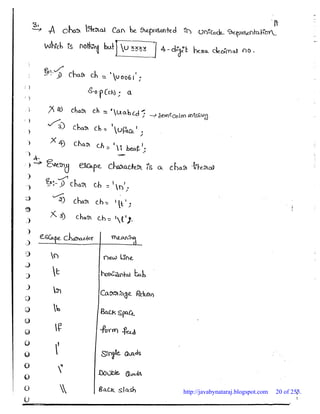 3. → A char literal can be represented in Unicode representation
which is nothing but \uxxxx 4-digit hexa decimal no.
Eg:- 1) char ch = '\u0061';
S.o.p(ch); a
X 2) char ch = '\uabcd; → semicolon missing
✓ 3) char ch = '\uface';
X 4) char ch = '\i beat';
4. → Every escape character is a char literal
Eg:- 1) char ch = '\n';
✓ 2) char ch = '\t';
X 3) char ch = '\l';
escape character meaning
\n new line
\t horizontal tab
\r Carriage Return
\b Back space
\f form feed
\' Single Quote
\" Double Quote
\\ Back slash
http://javabynataraj.blogspot.com 20 of 255.